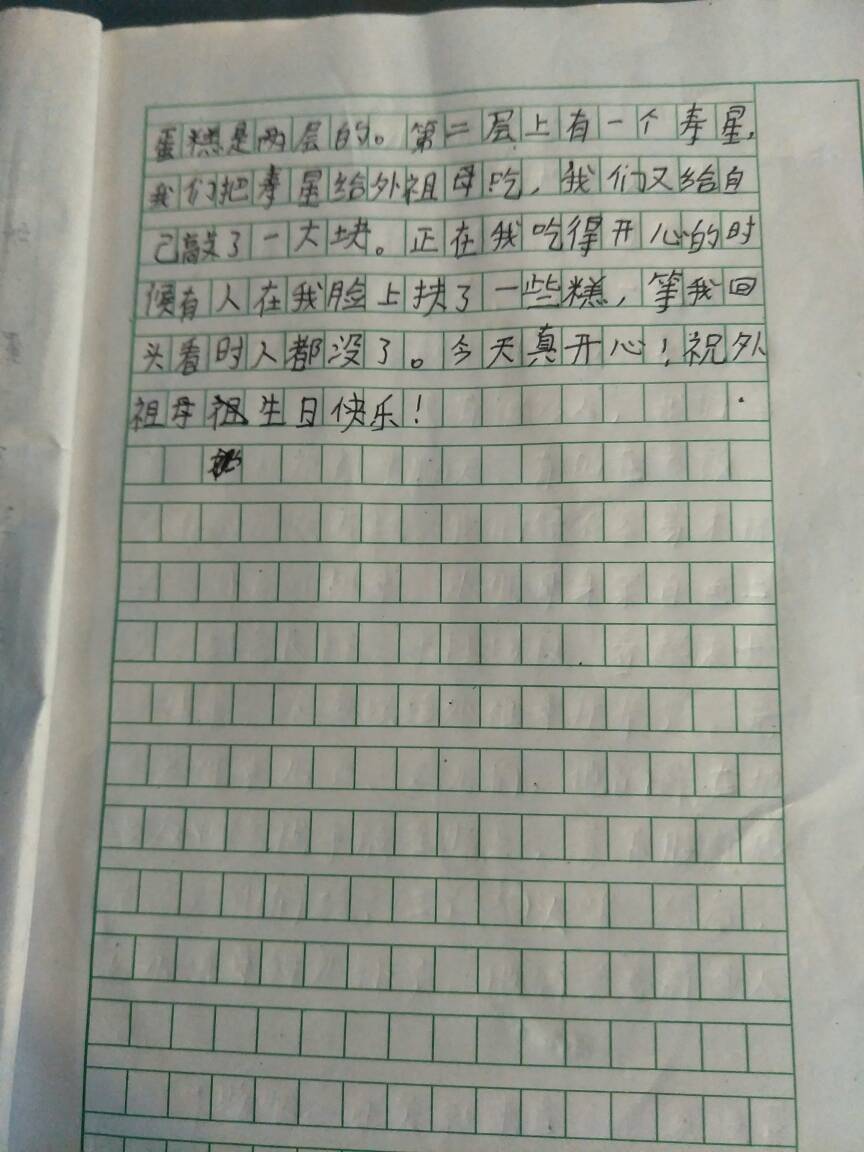 蛋糕是两层的。第二层上有一个寿星,
我们把寿星给外祖母吃，我们又给自
己了一大块。正在我吃得开心的时
候有人在我脸上扶了一些糕，等我回
头看时人都没了。今天真开心！祝外
祖母祖生日快乐！